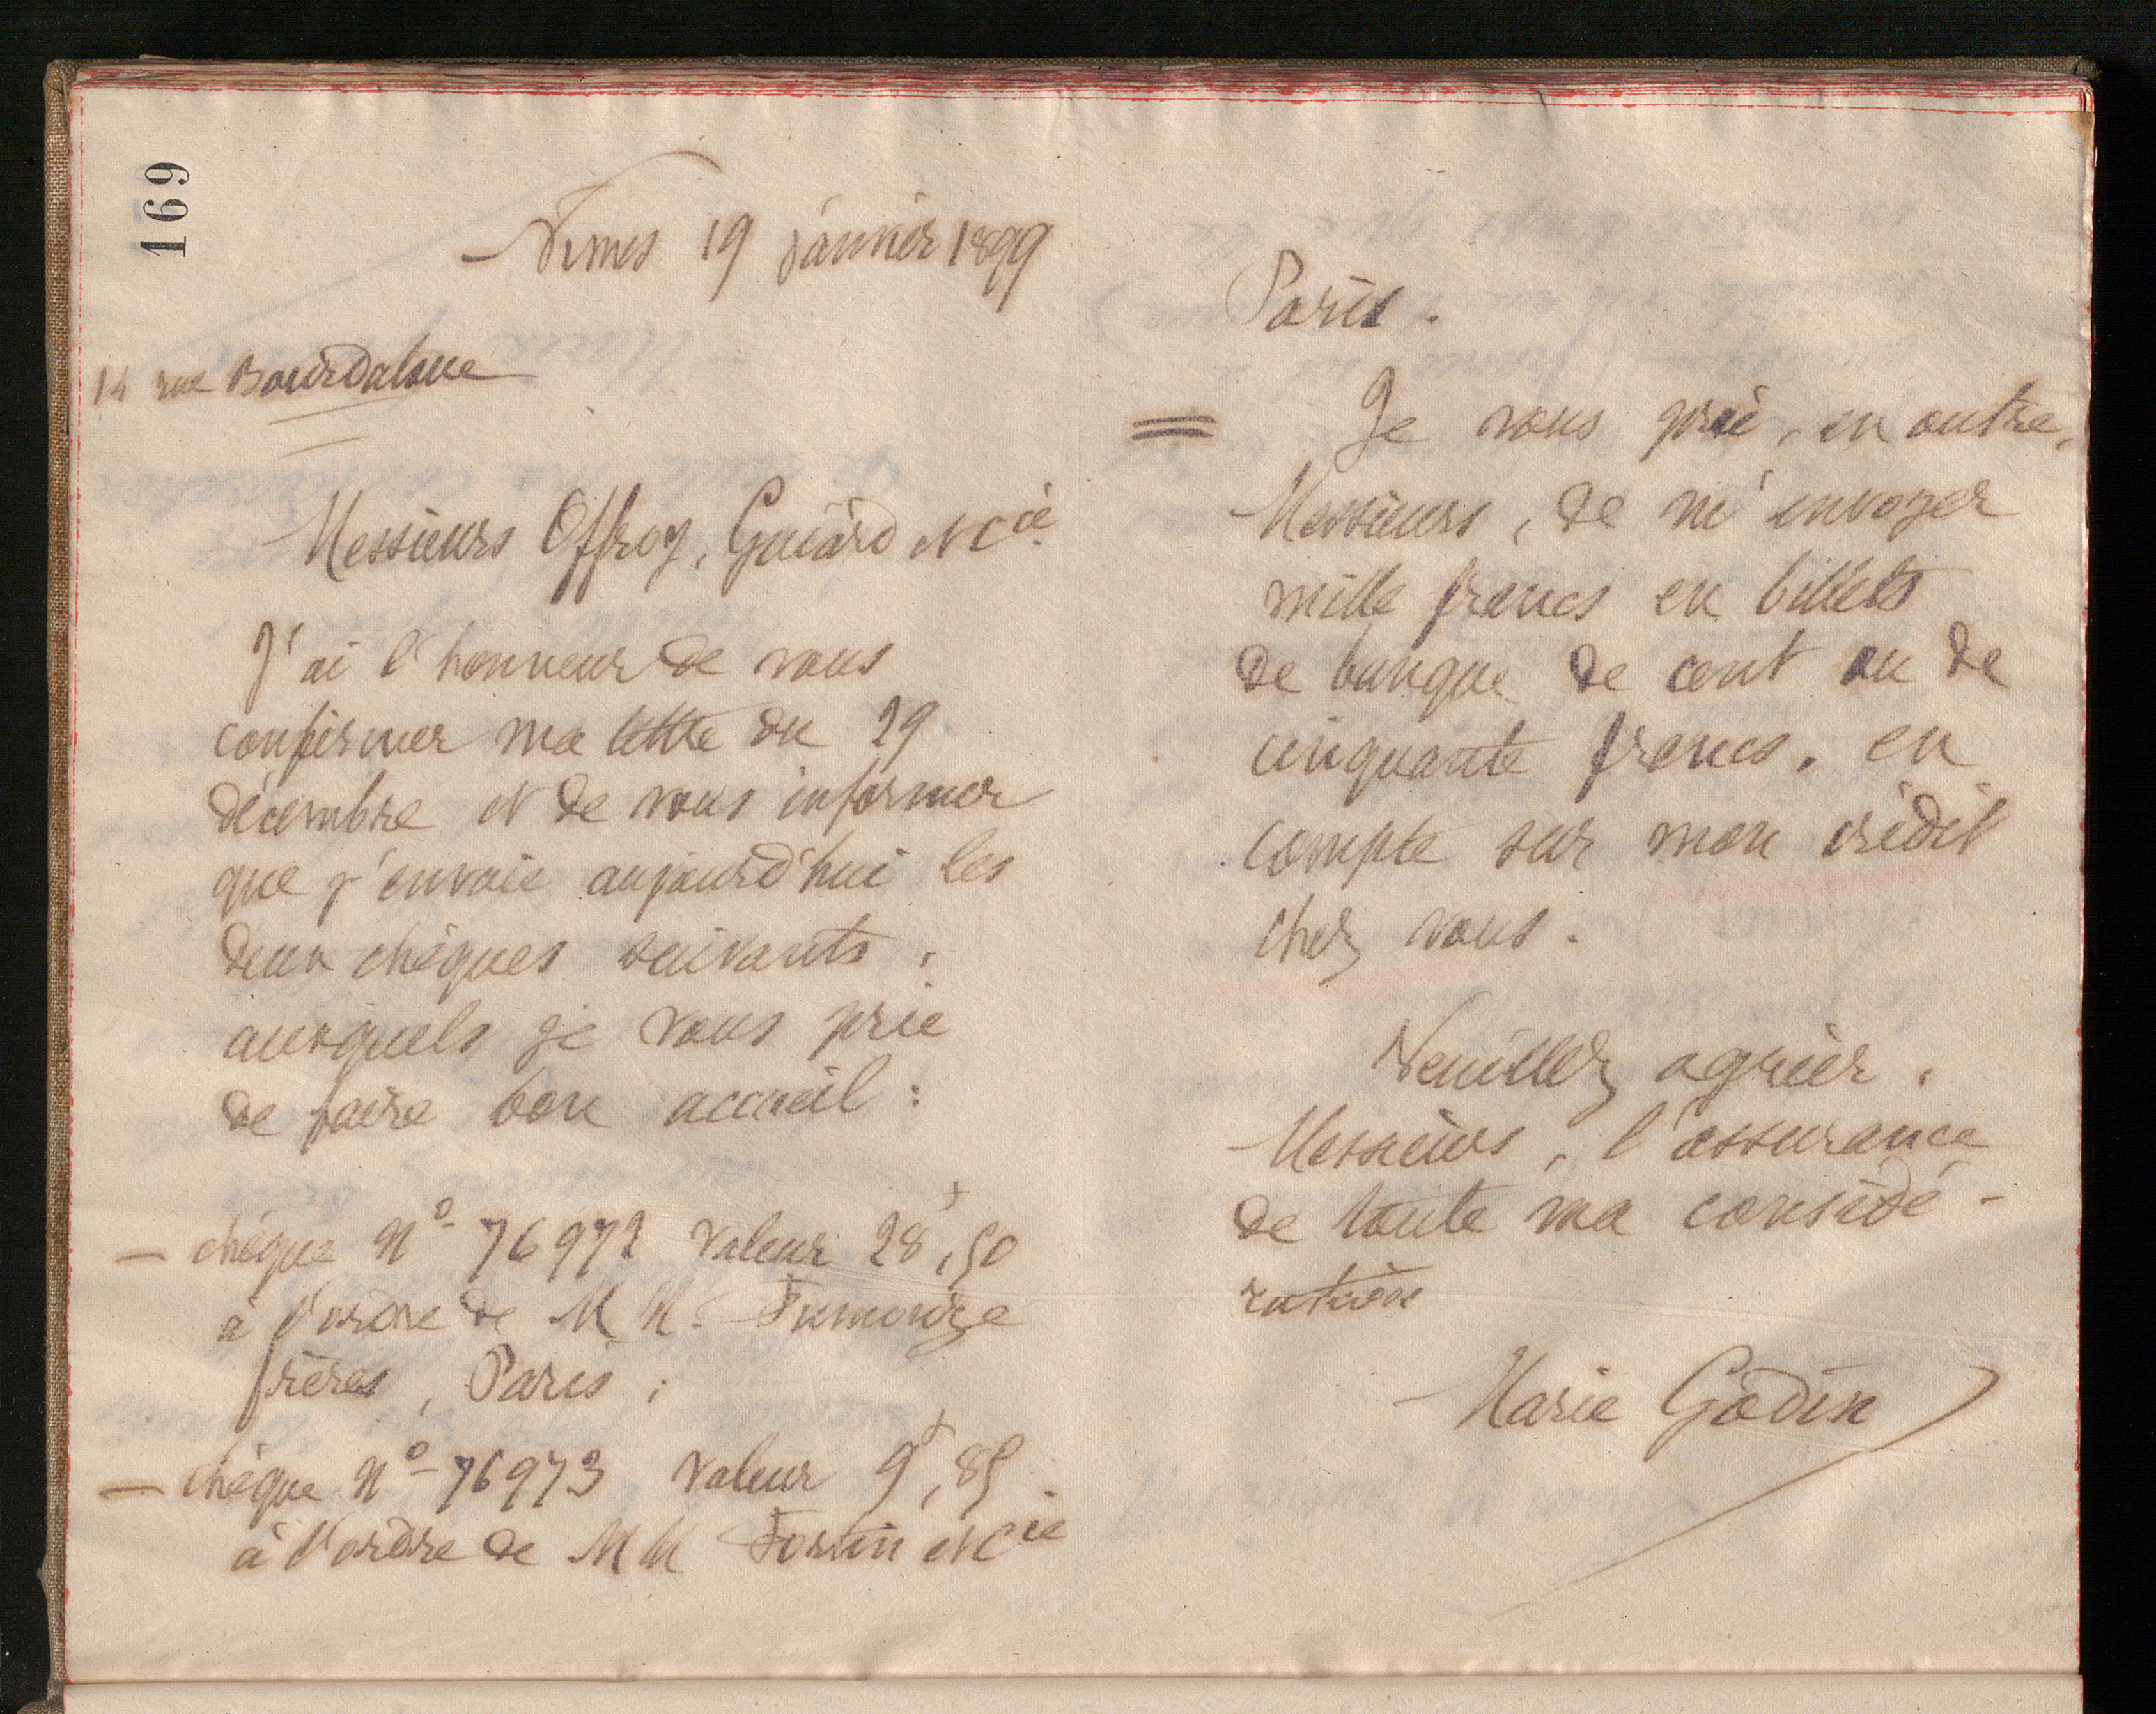 169
Nimes 19 janvier 1899
14 rue Bourdaloue
Messieurs Offroy, Guiard et Cie
J'ai l'honneur de vous
confirmer ma lettre du 29
décembre et de vous informer
que j'envoie aujourd'hui les
deux chèques suivants,
auxquels je vous prie
de faire bon accueil :
— chèque No 76972 valeur 28f,50
à l'ordre de M.M. Fumouze
frères, Paris ;
— chèque No 76973 valeur 9f,85
à l'ordre de MM Fortin et Cie
Paris.
= Je vous prie, en outre,
Messieurs, de m'envoyer
mille francs en billets
de banque de cent ou de
cinquante francs, en
compte sur mon crédit
chez vous.
Veuillez agréer,
Messieurs, l'assurance
de toute ma considé-
ration
Marie Godin